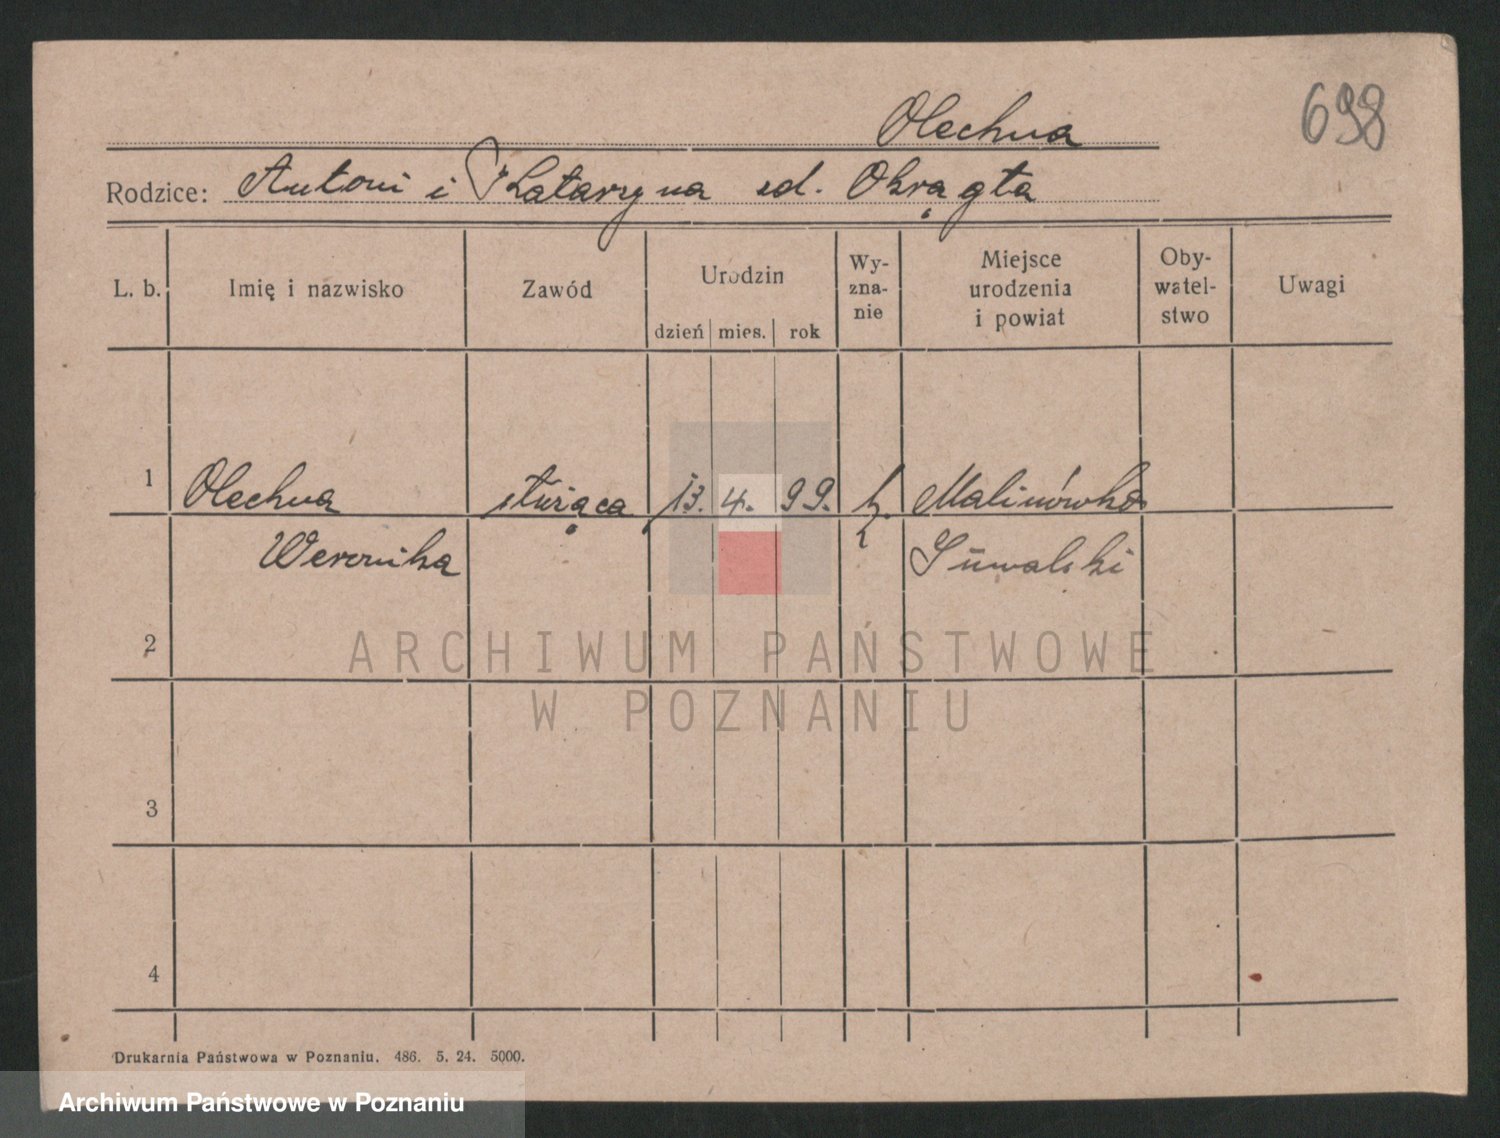 698
Olechna
Rodzice: Antoni i Katarzyna zd. Okrągła
L. b. Imię i nazwisko Zawód Urodzin dzień mies. rok Wy-zna-nie Miejsce urodzenia i powiat Oby-watel-stwo Uwagi
1 Olechna służąca 13. 4. 99. k. Malinówka
Weronika Suwalski
2
ARCHIWUM PAŃSTWOWE
W POZNANIU
3
4
Drukarnia Państwowa w Poznaniu. 486. 5. 24. 5000.
Archiwum Państwowe w Poznaniu